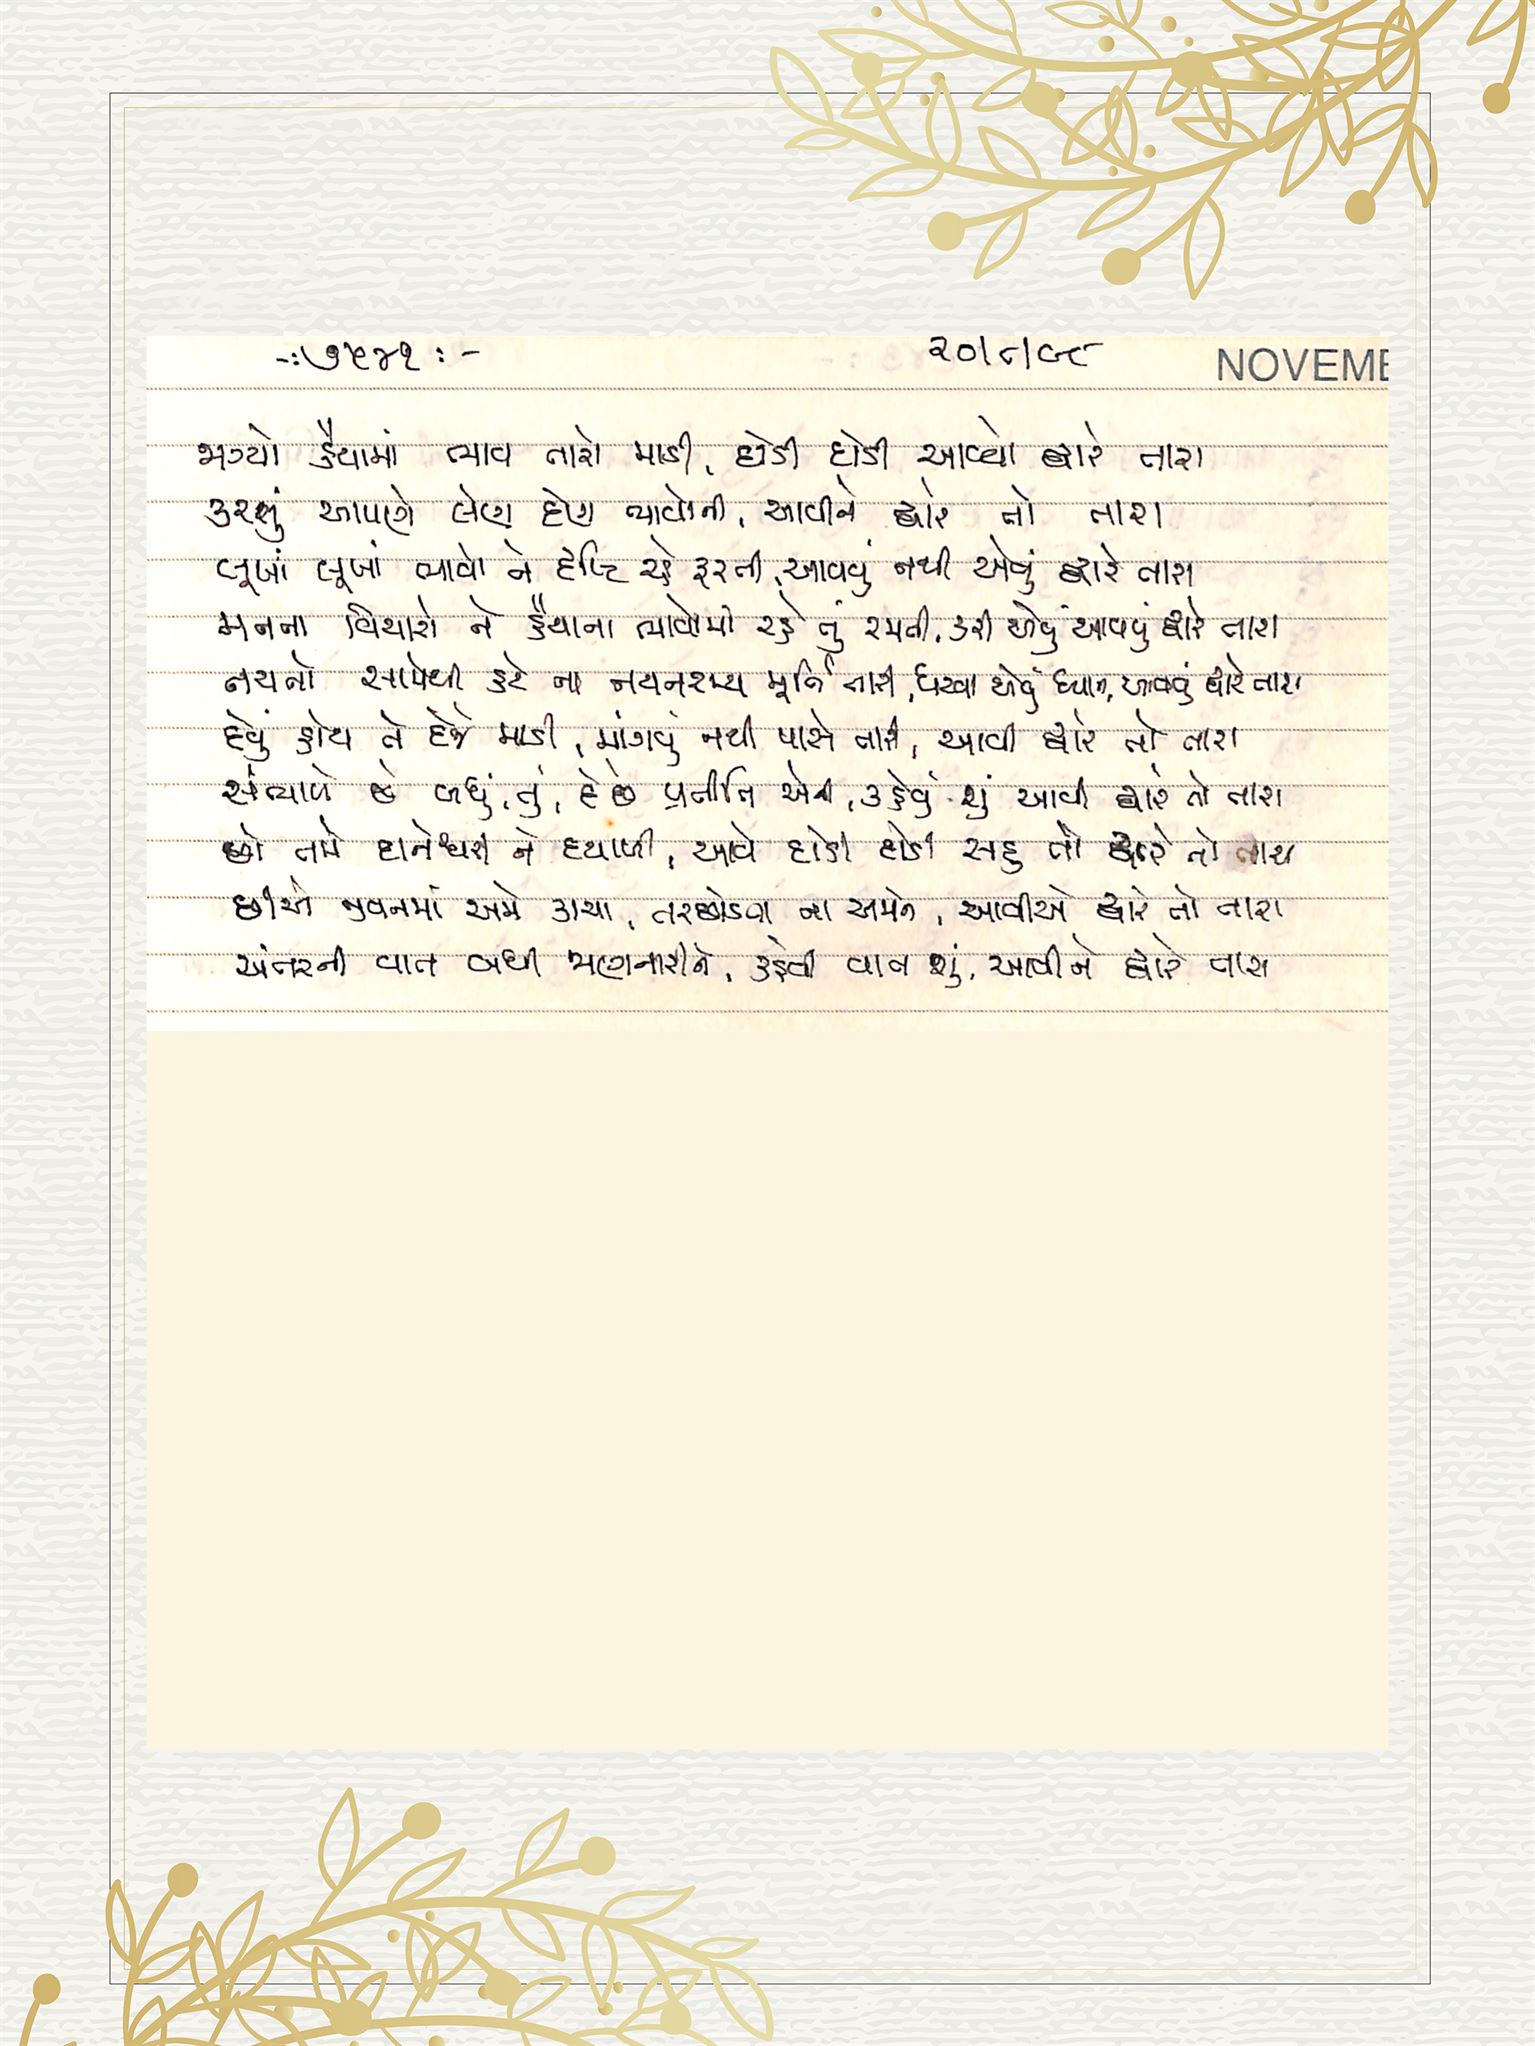 -:૭૫૪૧:- ૨૦|૮|૯૮ NOVEME
જાગ્યો હૈયામાં ભાવ તારો માડી, દોડી દોડી આવ્યો દ્વારે તારા
કરશું આપણે લેણ દેણ ભાવોની, આવીને દ્વારે તો તારા
લૂખાં લૂખાં ભાવો ને દૃષ્ટિ રહે ફરતી, આવવું નથી એવું દ્વારે તારા
મનના વિચારો ને હૈયાના ભાવોમાં રહે તું રમતી, કરી એવું આવવું દ્વારે તારા
નયનો સામેથી હટે ના નયનરમ્ય મૂર્તિ તારી, ધરવા એવું ધ્યાન, આવવું દ્વારે તારા
દેવું હોય તે દેજે માડી, માંગવું નથી પાસે તારી, આવી દ્વારે તો તારા
સંભાળે છે બધું, તું, દે છે પ્રતીતિ એની, કહેવું શું આવી દ્વારે તો તારા
છો તમે દાનેશ્વરી ને દયાળી, આવે દોડી દોડી સહુ તો દ્વારે તો તારા
છીએ જીવનમાં અમે કાચા, તરછોડતા ના અમને, આવીએ દ્વારે તો તારા
અંતરની વાત બધી જાણનારીને, કહેવી વાત શું, આવીને દ્વારે તારા